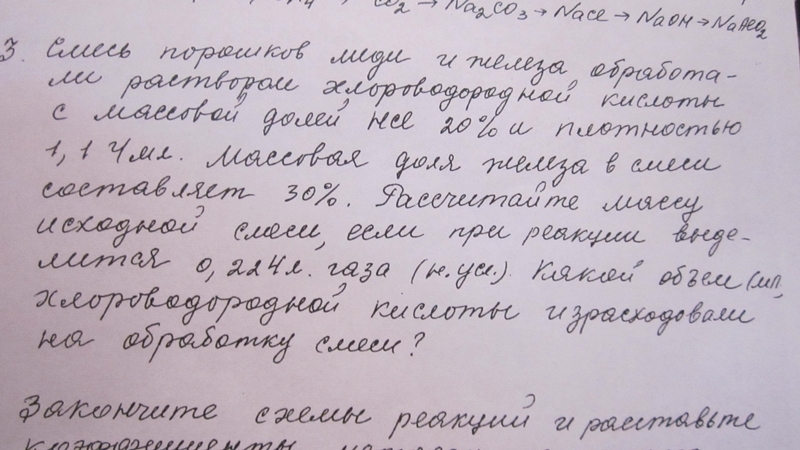 CO2 → Na2CO3 → NaCl → NaOH → NaAlO2
3. Смесь порошков меди и железа обработа-
ли раствором хлороводородной кислоты
с массовой долей HCl 20% и плотностью
1,1 г/мл. Массовая доля железа в смеси
составляет 30%. Рассчитайте массу
исходной смеси, если при реакции выде-
лится 0,224 л. газа (н.ус.). Какой объем (мл,
хлороводородной кислоты израсходовали
на обработку смеси?
Закончите схемы реакций и расставьте